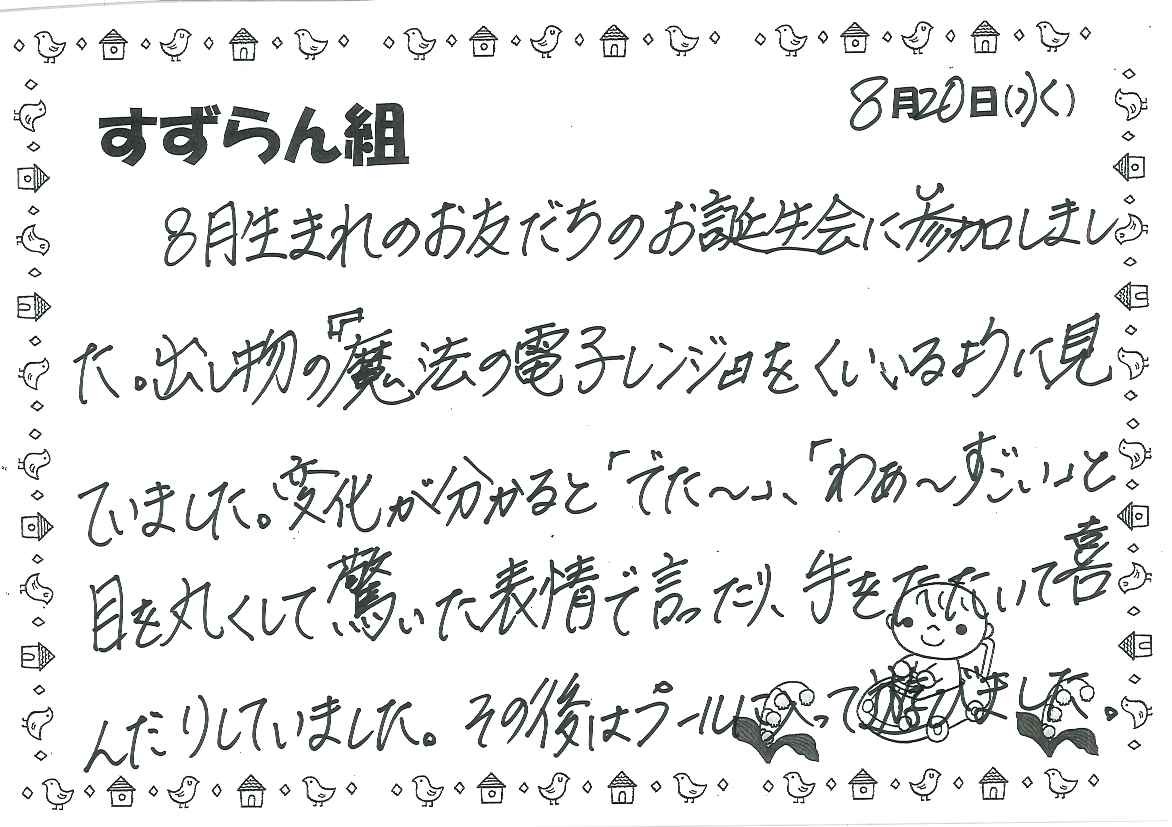 すずらん組
8月20日(水)
8月生まれのお友だちのお誕生会に参加しまし
た。出し物の『魔法の電子レンジ』をくいいるように見
ていました。変化が分かると「でた〜」、「わぁ〜すごい」と
目を丸くして驚いた表情で言ったり、手をたたいて喜
んだりしていました。その後はプールに入って遊びました。